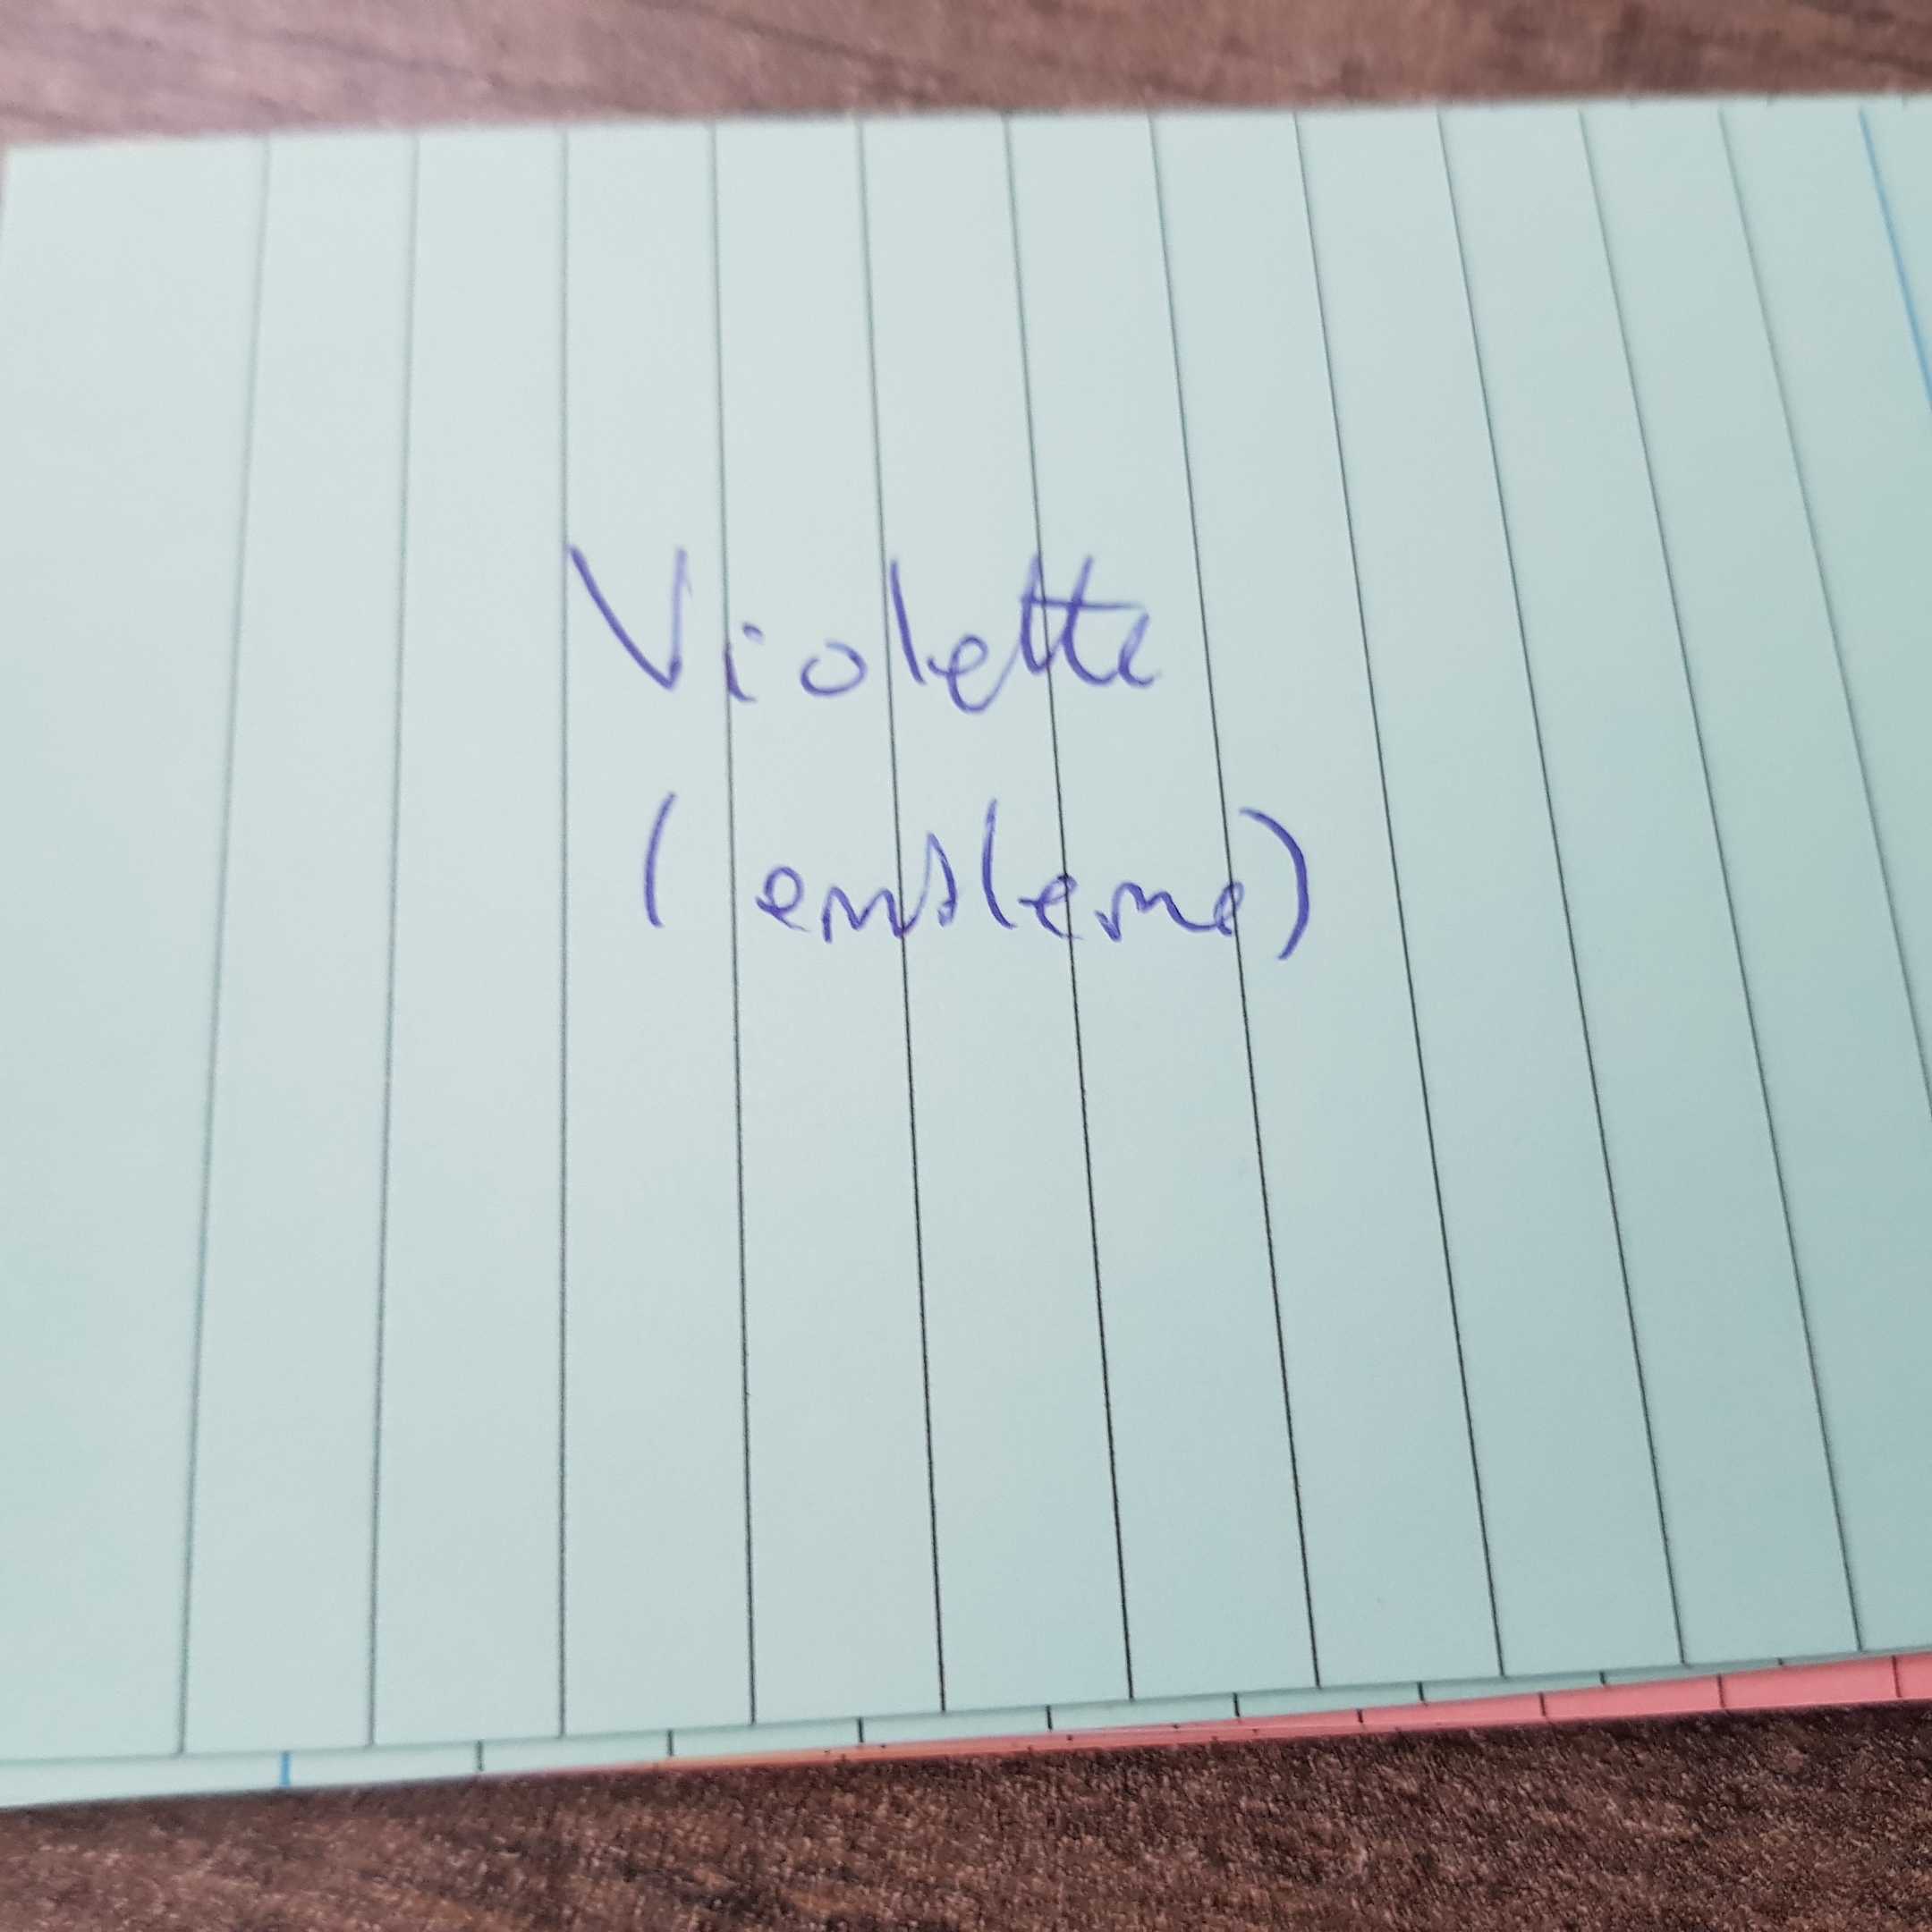 Violette
(embleme)